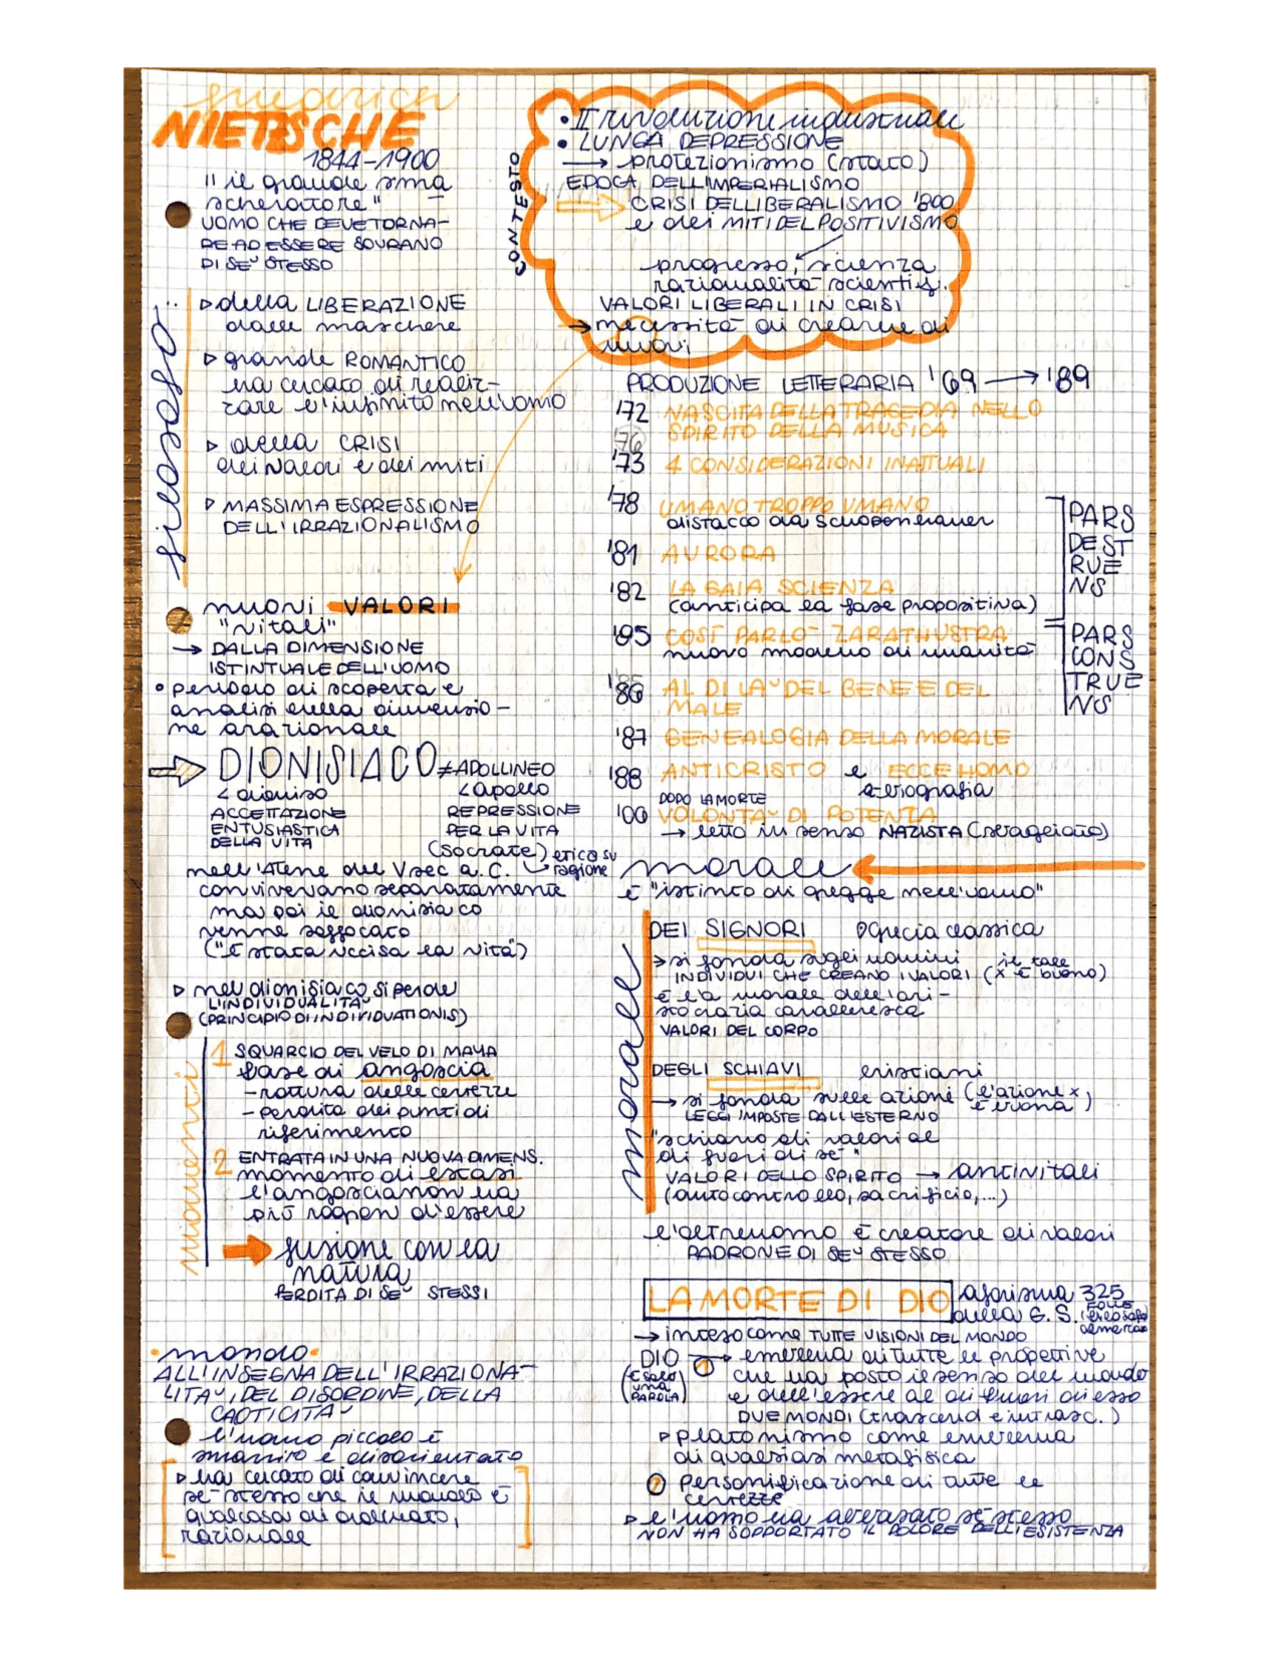 friedrich
NIETZSCHE
1844-1900
"il grande sma
scheratore"
UOMO CHE DEVE TORNA-
RE AD ESSERE SOVRANO
DI SE' STESSO
filosofo...
▹ della LIBERAZIONE
dalle maschere
▹ grande ROMANTICO
ha cercato di realiz-
zare l'infinito nell'uomo
▹ della CRISI
dei valori e dei miti
▹ MASSIMA ESPRESSIONE
DELL'IRRAZIONALISMO
CONTESTO
• II rivoluzione industriale
• LUNGA DEPRESSIONE
→ protezionismo (stato)
EPOCA DELL'IMPERIALISMO
⇒ CRISI DEL LIBERALISMO '800
e dei MITI DEL POSITIVISMO
progresso, scienza
razionalità scientif.
VALORI LIBERALI IN CRISI
→ necessità di crearne di
nuovi
nuovi VALORI
"vitali"
→ DALLA DIMENSIONE
ISTINTUALE DELL'UOMO
• periodo di scoperta e
analisi della dimensio-
ne arazionale
⇒ DIONISIACO ≠ APOLLINEO
< dioniso < apollo
ACCETTAZIONE REPRESSIONE
ENTUSIASTICA PER LA VITA
DELLA VITA (Socrate) etica su
ragione
nell'Atene del V sec a.C.
convivevano separatamente
ma poi il dionisiaco
venne soffocato
("È stata uccisa la vita")
▹ nel dionisiaco si perde
L'INDIVIDUALITA'
(PRINCIPIO DI INDIVIDUATIONIS)
momenti
1 SQUARCIO DEL VELO DI MAYA
fase di angoscia
- rottura delle certezze
- perdita dei punti di
riferimento
2 ENTRATA IN UNA NUOVA DIMENS.
momento di estasi
l'angoscia non ha
più ragion d'essere
→ fusione con la
natura
PERDITA DI SE' STESSI
• mondo •
ALL'INSEGNA DELL'IRRAZIONA-
LITA', DEL DISORDINE, DELLA
CAOTICITA'
l'uomo piccolo è
smarrito e disorientato
▹ ha cercato di convincere
sé-stesso che il mondo è
qualcosa di ordinato,
razionale
PRODUZIONE LETTERARIA '69 → '89
'72 NASCITA DELLA TRAGEDIA NELLO
SPIRITO DELLA MUSICA
'76
'73 4 CONSIDERAZIONI INATTUALI
'78 UMANO TROPPO UMANO
distacco da Schopenhauer
'81 AURORA
'82 LA GAIA SCIENZA
(anticipa la fase propositiva)
PARS
DEST
RUE
NS
'85 COSÌ PARLO' ZARATHUSTRA
nuovo modello di umanità
'86 AL DI LA' DEL BENE E DEL
MALE
PARS
CONS
TRUE
NS
'87 GENEALOGIA DELLA MORALE
'88 ANTICRISTO e ECCE HOMO
DOPO LA MORTE
'00 VOLONTA' DI POTENZA
→ letto in senso NAZISTA
morale ←
è "istinto di gregge nell'uomo"
morale
DEI SIGNORI Grecia classica
→ si fonda sugli uomini
INDIVIDUI CHE CREANO I VALORI (x è buono)
È la morale dell'ari-
stocrazia cavalleresca
VALORI DEL CORPO
DEGLI SCHIAVI cristiani
→ si fonda sulle azioni (l'azione x
è buona)
LEGGI IMPOSTE DALL'ESTERNO
"schiavo di valori al
di fuori di sé"
VALORI DELLO SPIRITO → antivitali
(autocontrollo, sacrificio,...)
l'oltreuomo è creatore di valori
PADRONE DI SE' STESSO
LA MORTE DI DIO aforisma 325
della G.S.
→ inteso come TUTTE VISIONI DEL MONDO
DIO → 1 emblema di tutte le prospettive
(È SOLO
UNA
PAROLA)
che ha posto il senso del mondo
e dell'essere al di fuori di esso
DUE MONDI (trascend e intrasc.)
▹ platonismo come emblema
di qualsiasi metafisica
2 personificazione di tutte le
certezze
▹ l'uomo ha
NON HA SOPPORTATO IL DOLORE DELL'ESISTENZA